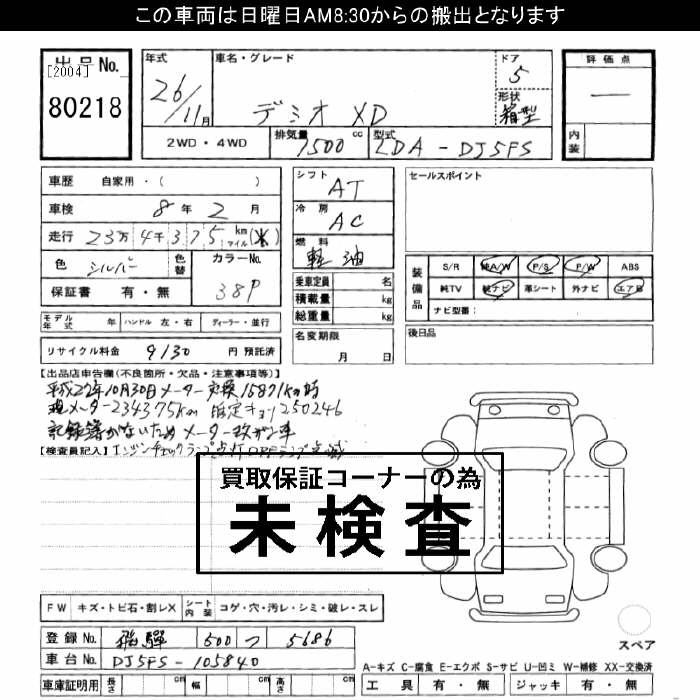 この車両は日曜日AM8:30からの搬出となります
出品No.
[2004]
80218
年式
26/11月
車名・グレード
デミオ XD
ドア
5
形状
箱型
評価点
—
内装
2WD・4WD
排気量 1500 cc
型式 LDA-DJ5FS
車歴 自家用・( )
車検 8年 2月
走行 23万4千375 km マイル (※)
色 シルバー
色替
カラーNo.
38P
保証書 有・無
シフト
AT
冷房
AC
燃料
軽油
乗車定員 名
積載量 kg
総重量 kg
セールスポイント
装備品
S/R 純A/W P/S P/W ABS
純TV 純ナビ 革シート 外ナビ エアB
ナビ型番:
モデル年式 年 ハンドル 左・右 ディーラー・並行
リサイクル料金 9130 円 預託済
名変期限
月 日
後日品
【出品店申告欄(不良箇所・欠品・注意事項等)】
平成27年10月30日メーター交換15871km時
現メーター234375km 推定キョリ250246
記録簿がないため メーター改ザン車
【検査員記入】エンジンチェックランプ点灯 DPFランプ点滅
買取保証コーナーの為
未検査
FW キズ・トビ石・割レX シート内装 コゲ・穴・汚レ・シミ・破レ・スレ
登録No. 飛騨 500 つ 5686
車台No. DJ5FS-105840
車庫証明用 長さ cm 幅 cm 高さ cm
スペア
A-キズ C-腐食 E-エクボ S-サビ U-凹ミ W-補修 XX-交換済
工具 有・無 ジャッキ 有・無